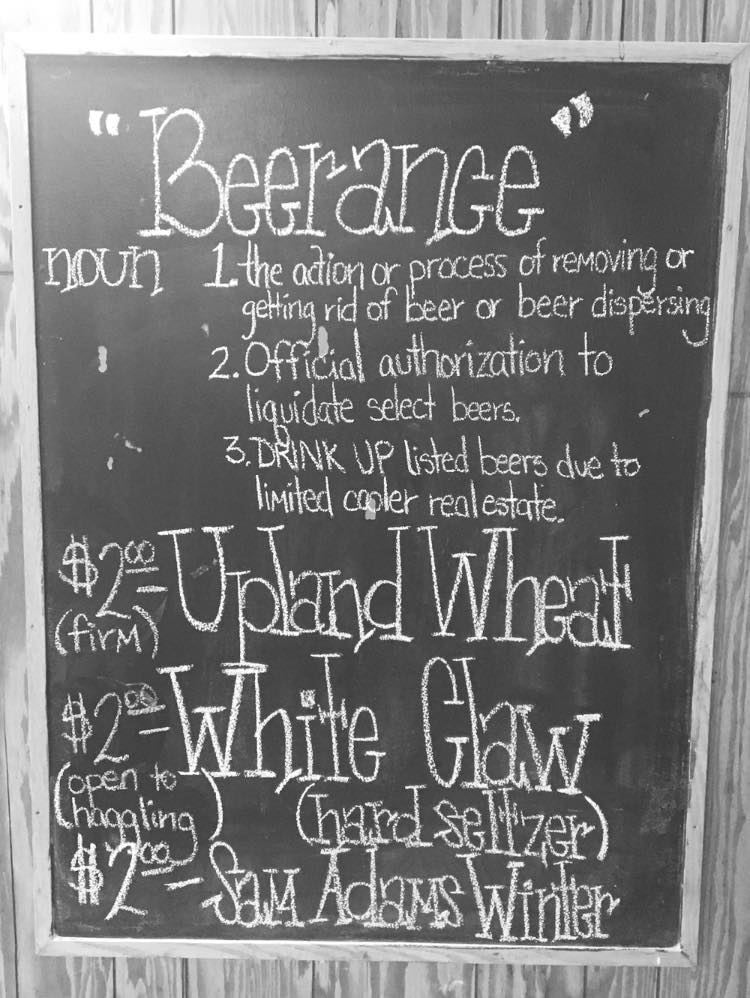 "Beerance"
noun 1. the action or process of removing or
getting rid of beer or beer dispersing
2. Official authorization to
liquidate select beers.
3. DRINK UP listed beers due to
limited cooler real estate.
$2.00 - Upland Wheat
(firm)
$2.00 - White Claw
(open to haggling) (hard seltzer)
$2.00 - Sam Adams Winter